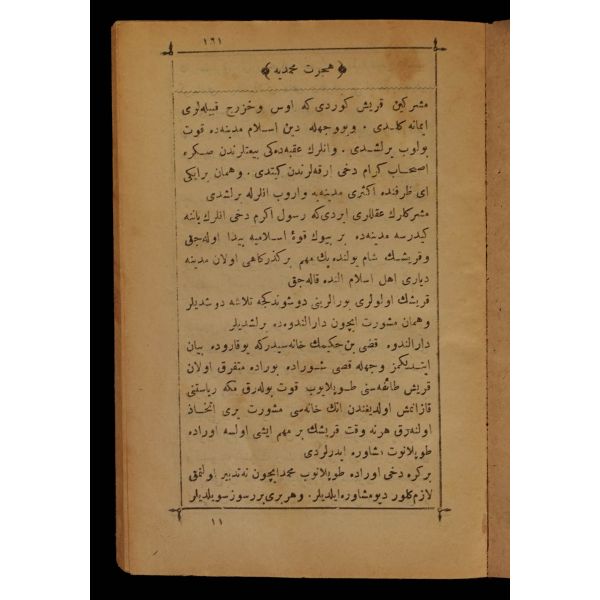 ١٦١
﴿ هجرت محمديه ﴾
مشركين قريش كوردى كه اوس و خزرج قبيله‌لرى
ايمانه كلدى . وبووجهله دين اسلام مدينه‌ده قوت
بولوب يرلشدى . وانلرك عقبه‌ده‌كى بيعتلرندن صكره
اصحاب كرام دخى ارقه‌لرندن كيتدى . وهمان برايكى
اى ظرفنده اكثرى مدينه‌يه واروب انلرله برلشدى
مشركلرك عقللرى ايردى‌كه رسول اكرم دخى انلرك ياننه
كيدرسه مدينه‌ده بر بيوك قوۀ اسلاميه پيدا اوله‌جق
وقريشك شام يولنده پك مهم بركذركاهى اولان مدينه
ديارى اهل اسلام النده قاله‌جق
قريشك اولولرى بورالرينى دوشوندكجه تلاشه دوشديلر
وهمان مشورت ايچون دارالندوه‌ده برلشديلر
دارالندوه قصى بن حكيمك خانه‌سيدركه يوقاروده بيان
ايتديكمز وجهله قصى شوراده بوراده متفرق اولان
قريش طائفه‌سنى طوپلايوب قوت بوله‌رق مكه رياستنى
قازانمش اولديغندن انك خانه‌سى مشورت يرى اتخاذ
اولنه‌رق هر نه وقت قريشك بر مهم ايشى اولسه اوراده
طوپلانوب مشاوره ايدرلردى
بركره دخى اوراده طوپلانوب محمد ايچون نه‌تدبير اولنمق
لازم كلور ديو مشاوره ايلديلر . وهربرى بررسوز سويلديلر
١١